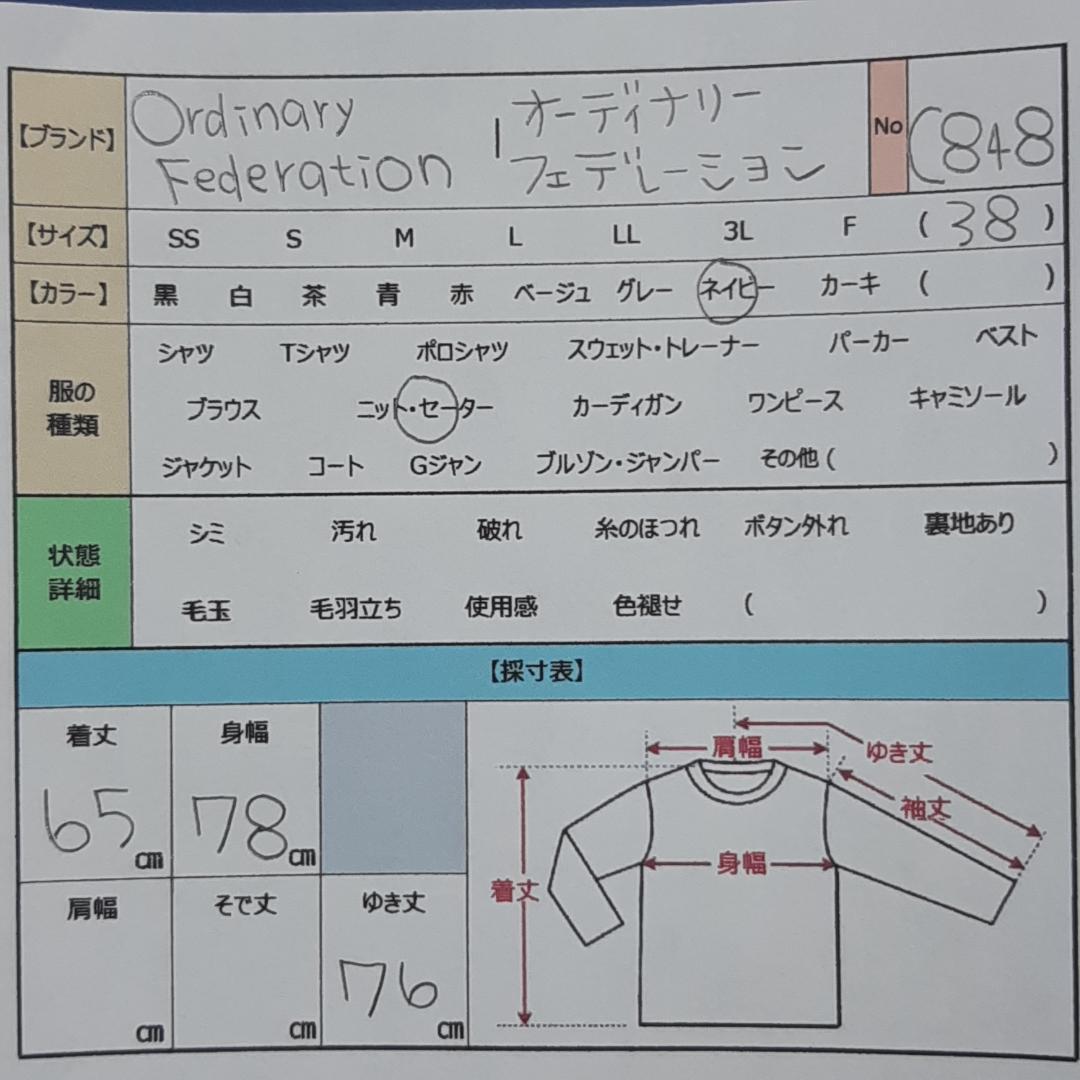 【ブランド】 Ordinary オーディナリー No C848
Federation フェデレーション
【サイズ】 SS S M L LL 3L F ( 38 )
【カラー】 黒 白 茶 青 赤 ベージュ グレー ネイビー カーキ ( )
服の種類 シャツ Tシャツ ポロシャツ スウェット・トレーナー パーカー ベスト
ブラウス ニット・セーター カーディガン ワンピース キャミソール
ジャケット コート Gジャン ブルゾン・ジャンパー その他 ( )
状態詳細 シミ 汚れ 破れ 糸のほつれ ボタン外れ 裏地あり
毛玉 毛羽立ち 使用感 色褪せ ( )
【採寸表】
着丈 身幅
65 cm 78 cm
肩幅 そで丈 ゆき丈
cm cm 76 cm
肩幅 ゆき丈
袖丈
身幅
着丈